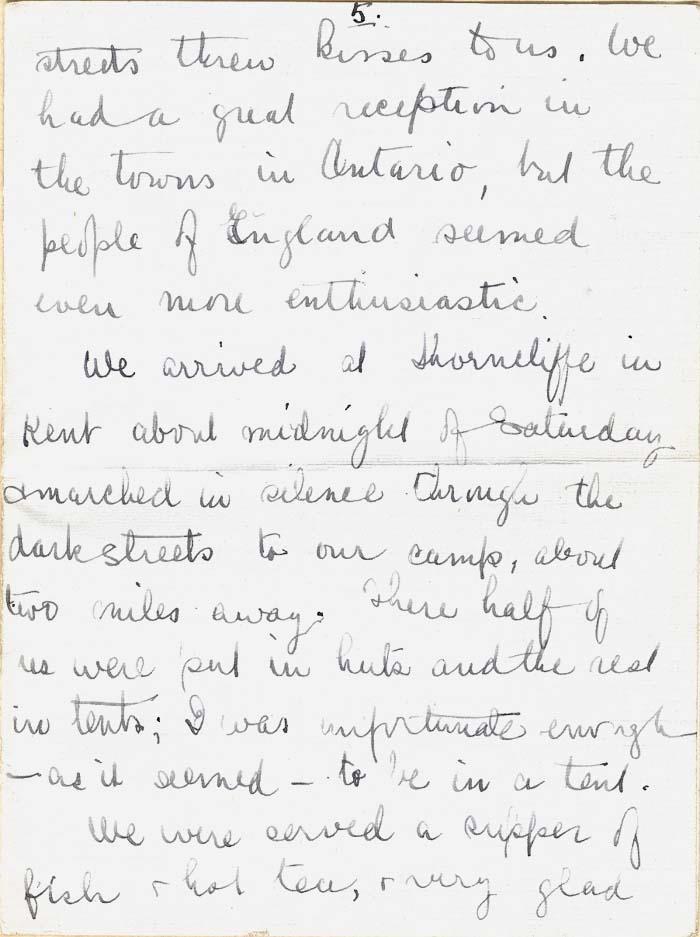 5.
streets threw kisses to us. We
had a great reception in
the towns in Ontario, but the
people of England seemed
even more enthusiastic.
We arrived at Shorncliffe in
Kent about midnight of Saturday
& marched in silence through the
dark streets to our camp, about
two miles away. There half of
us were put in huts and the rest
in tents; I was unfortunate enough
- as it seemed - to be in a tent.
We were served a supper of
fish & hot tea, & very glad